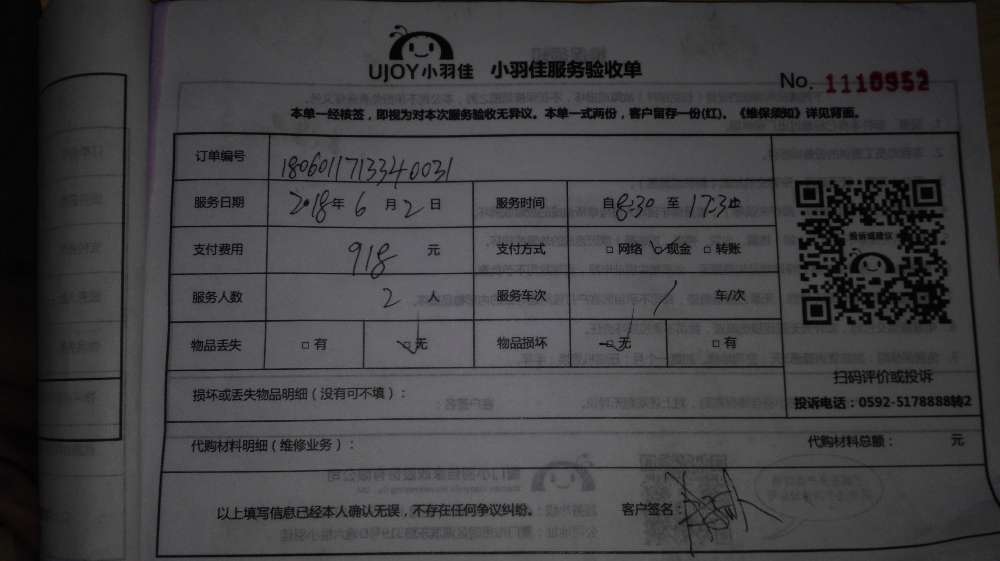 UJOY小羽佳 小羽佳服务验收单
No. 1110952
本单一经核签，即视为对本次服务验收无异议。本单一式两份，客户留存一份(红)。《维保须知》详见背面。
订单编号 1806011713340031
服务日期 2018年6月2日 服务时间 自8:30至17:30止
支付费用 918 元 支付方式 □网络 □现金 □转账
服务人数 2 人 服务车次 1 车/次
物品丢失 □有 □无 物品损坏 □无 □有
投诉或建议
扫码评价或投诉
投诉电话：0592-5178888转2
损坏或丢失物品明细（没有可不填）：
代购材料明细（维修业务）： 代购材料总额： 元
以上填写信息已经本人确认无误，不存在任何争议纠纷。 客户签名：